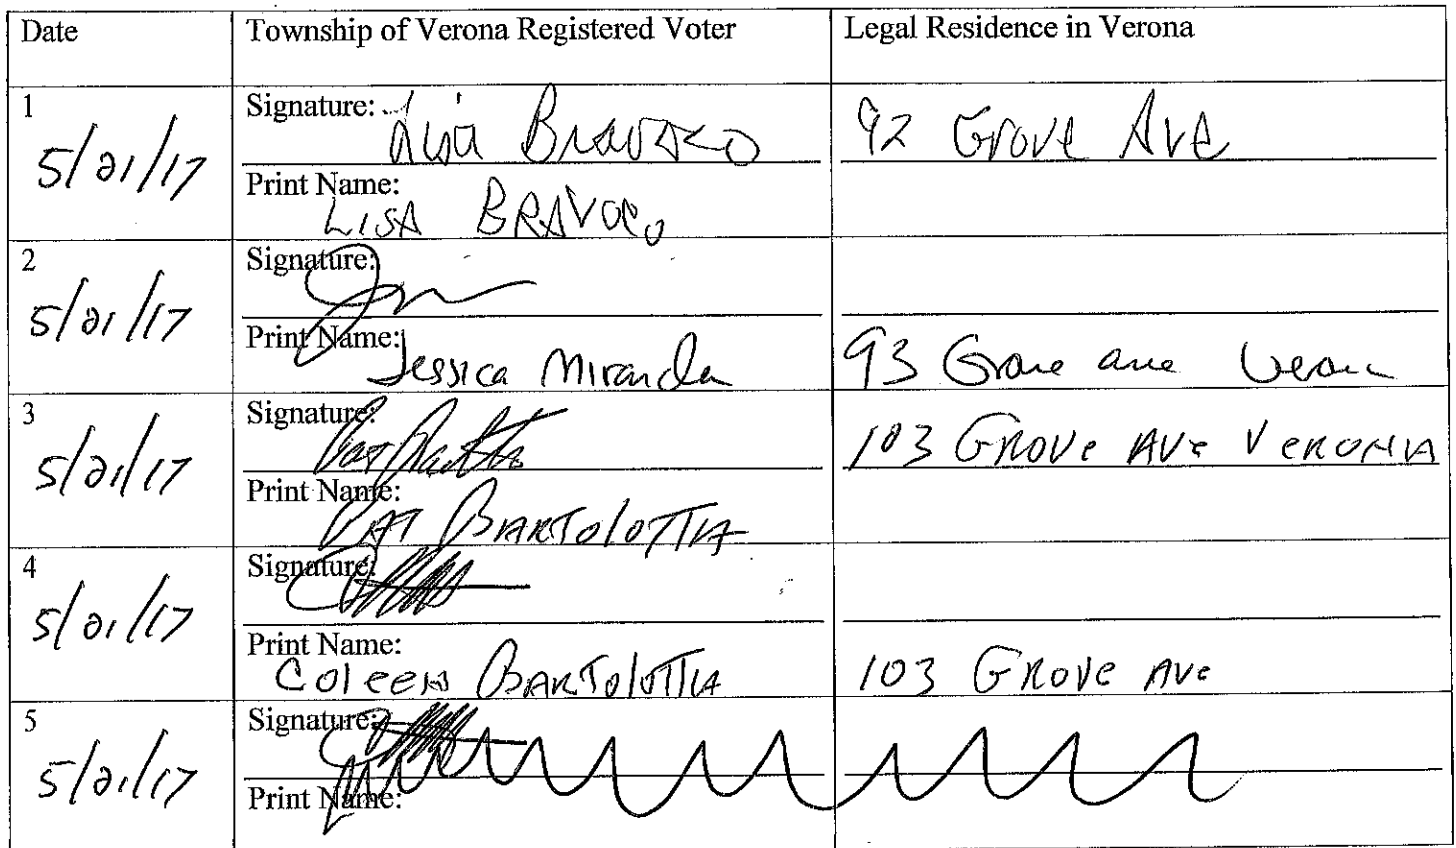 Date Township of Verona Registered Voter Legal Residence in Verona
1
5/21/17
Signature: Lisa Bravoco
92 Grove Ave
Print Name:
LISA BRAVOCO
2
5/21/17
Signature:
Print Name: Jessica Miranda
93 Grove ave Verona
3
5/21/17
Signature:
103 GROVE AVE VERONA
Print Name:
PAT BARTOLOTTA
4
5/21/17
Signature:
Print Name:
Coleen BARTOLOTTA
103 GROVE AVE
5
5/21/17
Signature:
Print Name: